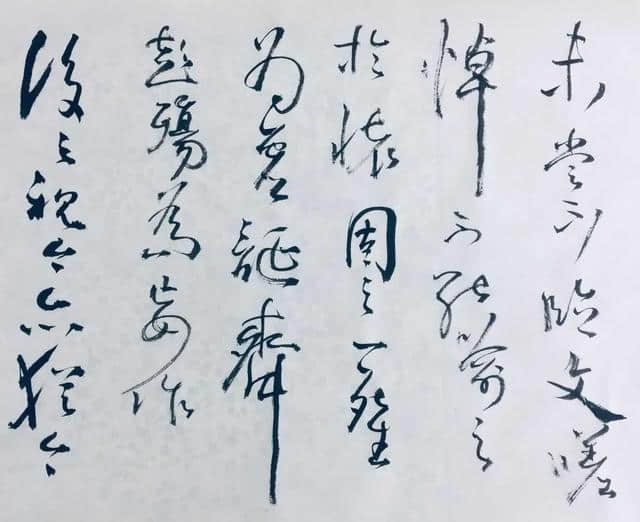 未嘗不臨文嗟
悼不能喻之
於懷固知一死生
為虛誕齊
彭殤為妄作
後之視今亦猶今